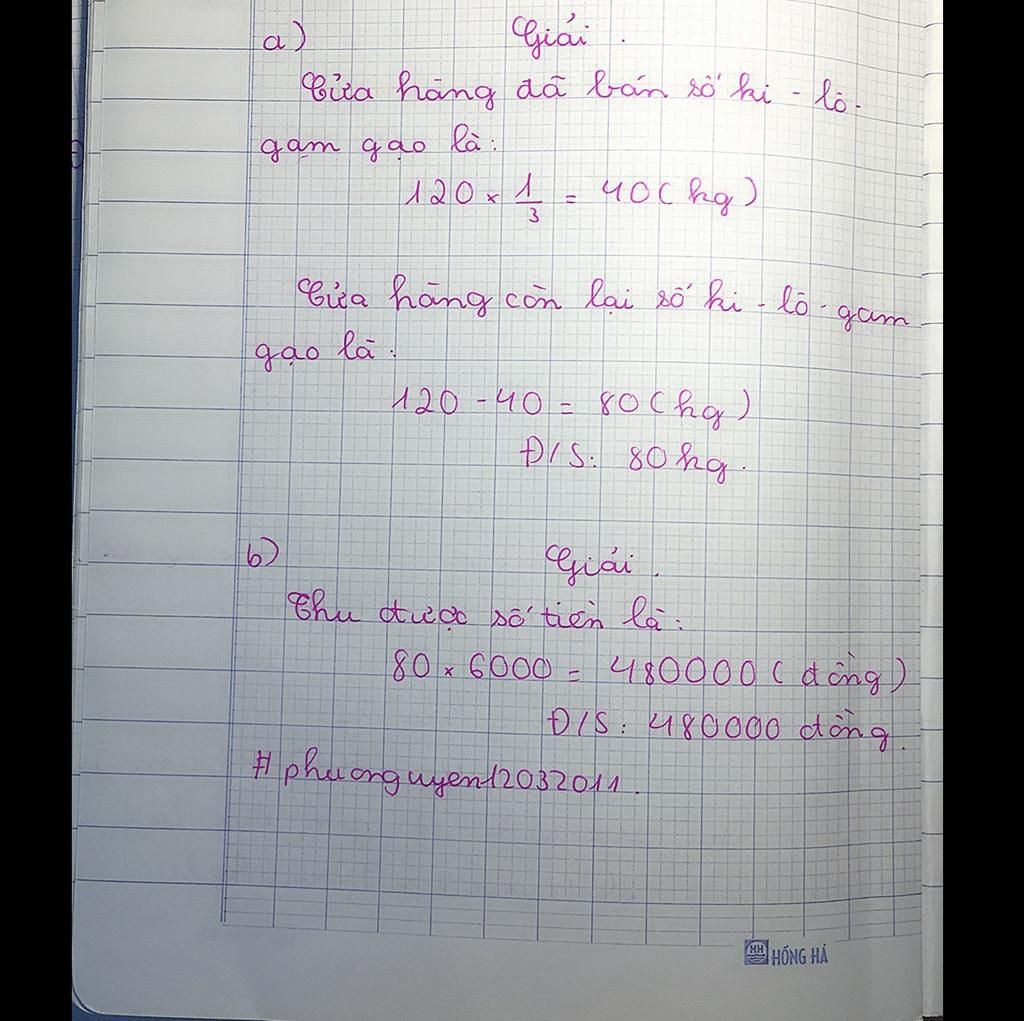 a) Giải.
Cửa hàng đã bán số ki-lô-
gam gạo là:
120 × 1/3 = 40 (kg)
Cửa hàng còn lại số ki-lô-gam
gạo là:
120 - 40 = 80 (kg)
Đ/S: 80 kg.
b) Giải.
Thu được số tiền là:
80 × 6000 = 480000 (đồng)
Đ/S: 480000 đồng.
#phuonguyen12032011.
HH HỒNG HÀ